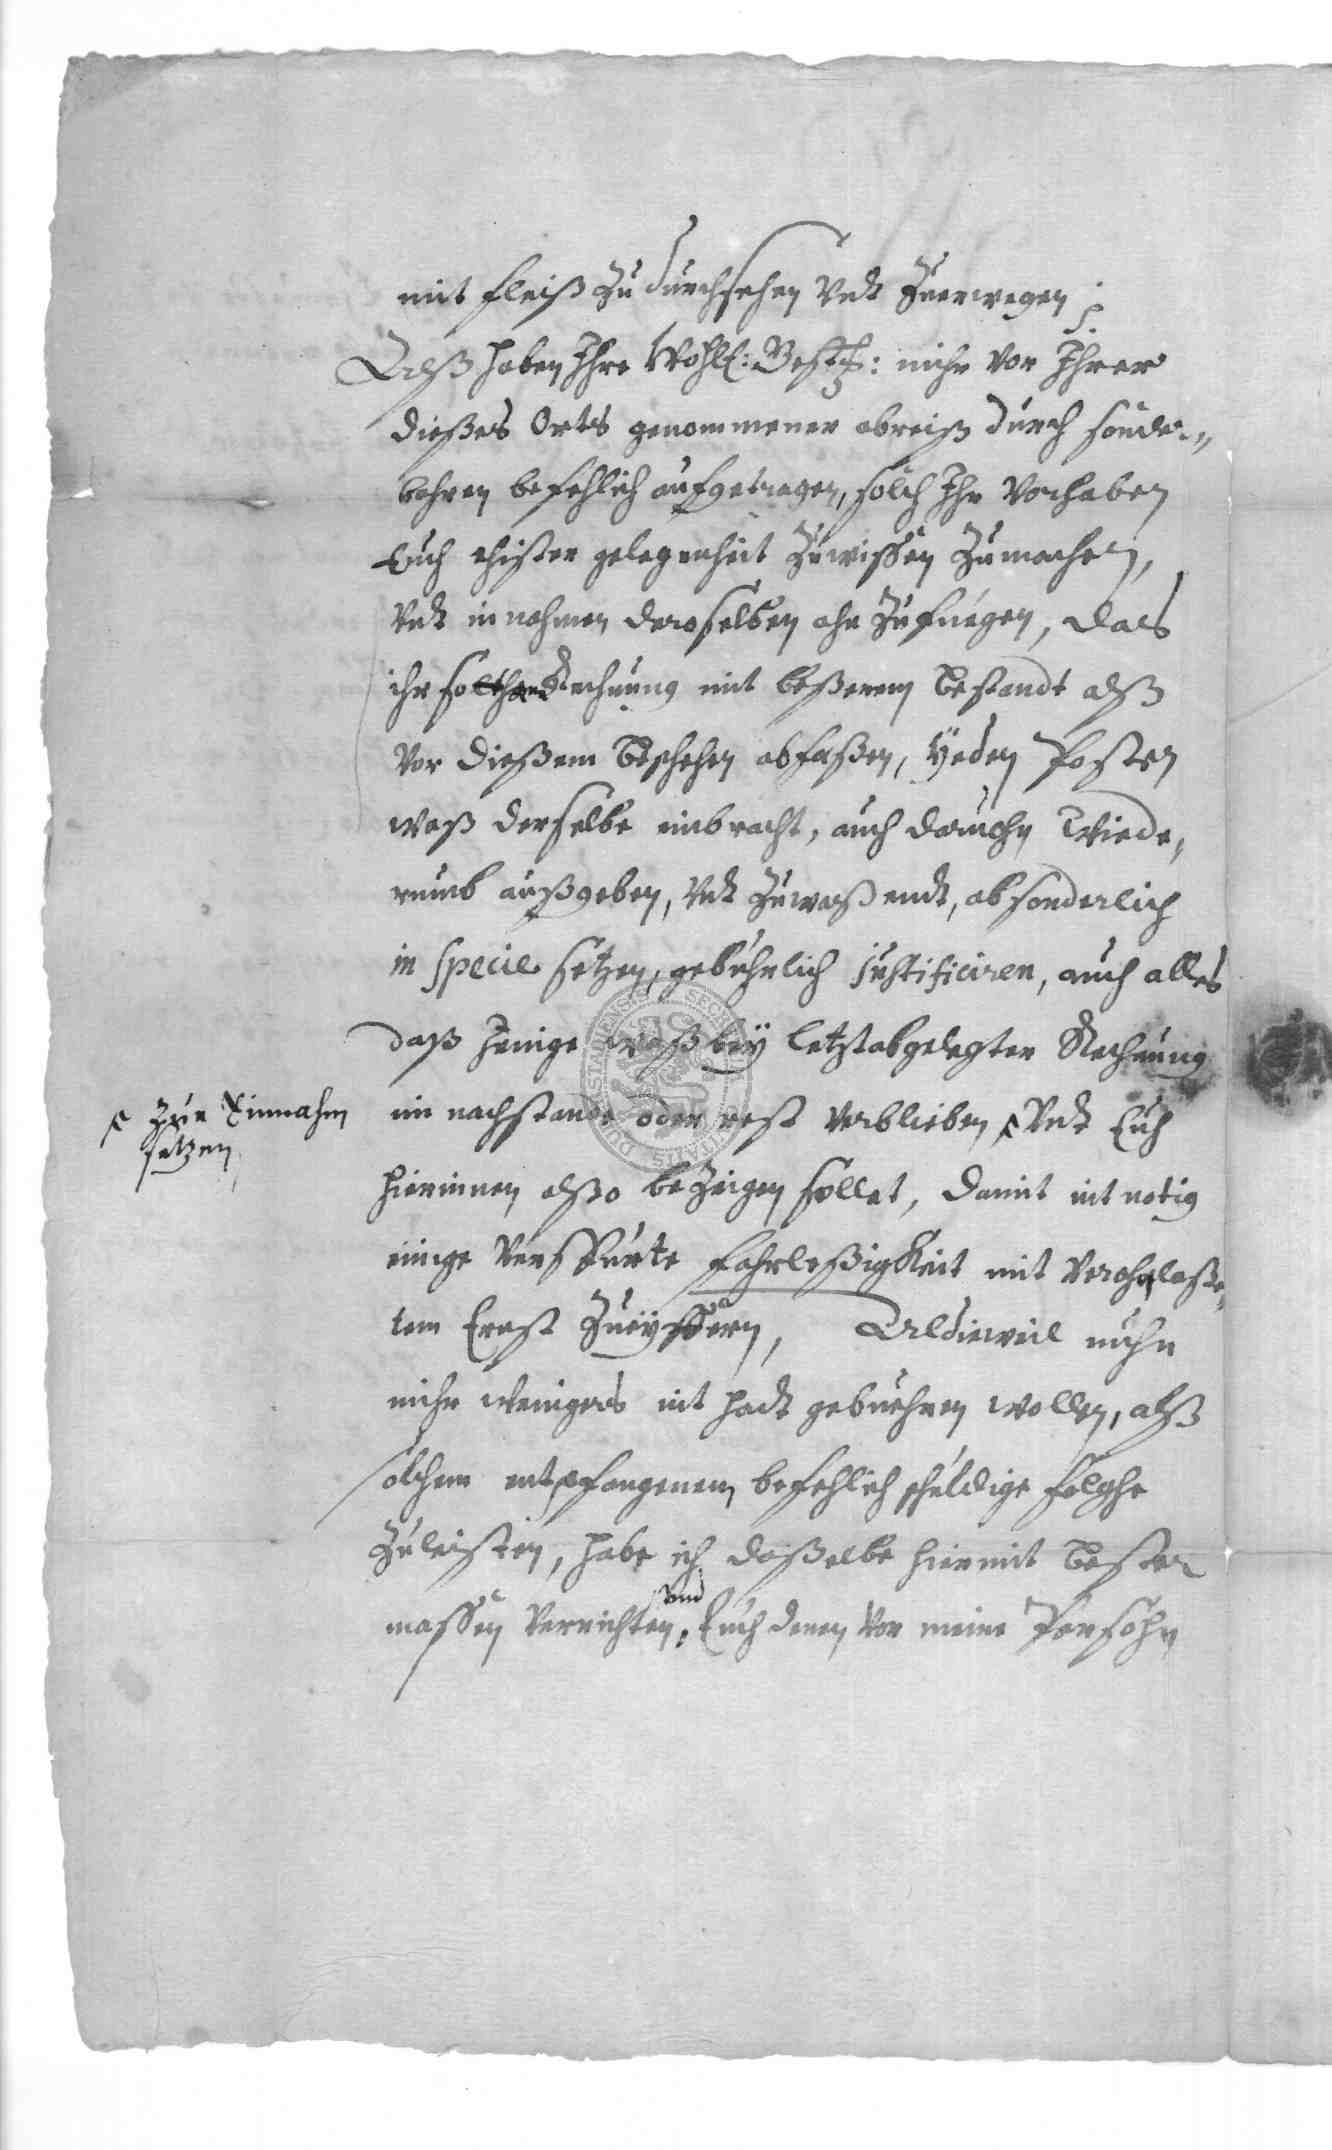 mit fleiß zu durchsehen Vndt Zuerwegen
Alß haben Ihre Wohl: mihr Vor Ihrer
dießes Orts genommener abreiß durch sonder-
bahren befehlich aufgetragen, solch Ihr Vorhaben
Euch ehister gelegenheit Zuwissen Zumachen,
Vndt in nahmen deroselben ahn Zufuegen, das
ihr solche Rechnung mit beßerem bestandt alß
Vor dießem beschehen abfaßen, Yeden Posten
waß derselbe einbracht, auch dauohn wiede,
rumb außgeben, Vndt Zuwaß endt, absonderlich
in specie setzen, gebuhrlich justificiren, auch alles
daß Jenige waß bey letztabgelegter Rechnung
im nachstande oder rest Verblieben Vndt Euch
Zur Einnahm
setzen
hierinnen alßo bezeigen sollet, damit nit notig
einige Verspürte fahrleßigkeit mit Verahnlaße,
tem Ernst Zueyssern, Alldieweil nuhn
mihr wenigers nit hadt gebuehren wollen, alß
solchem entpfangenem befehlich schuldige folghe
Zuleisten, habe ich daßelbe hiermit bester
massen Verrichten, Vnd Euch denen Vor meine Persohn